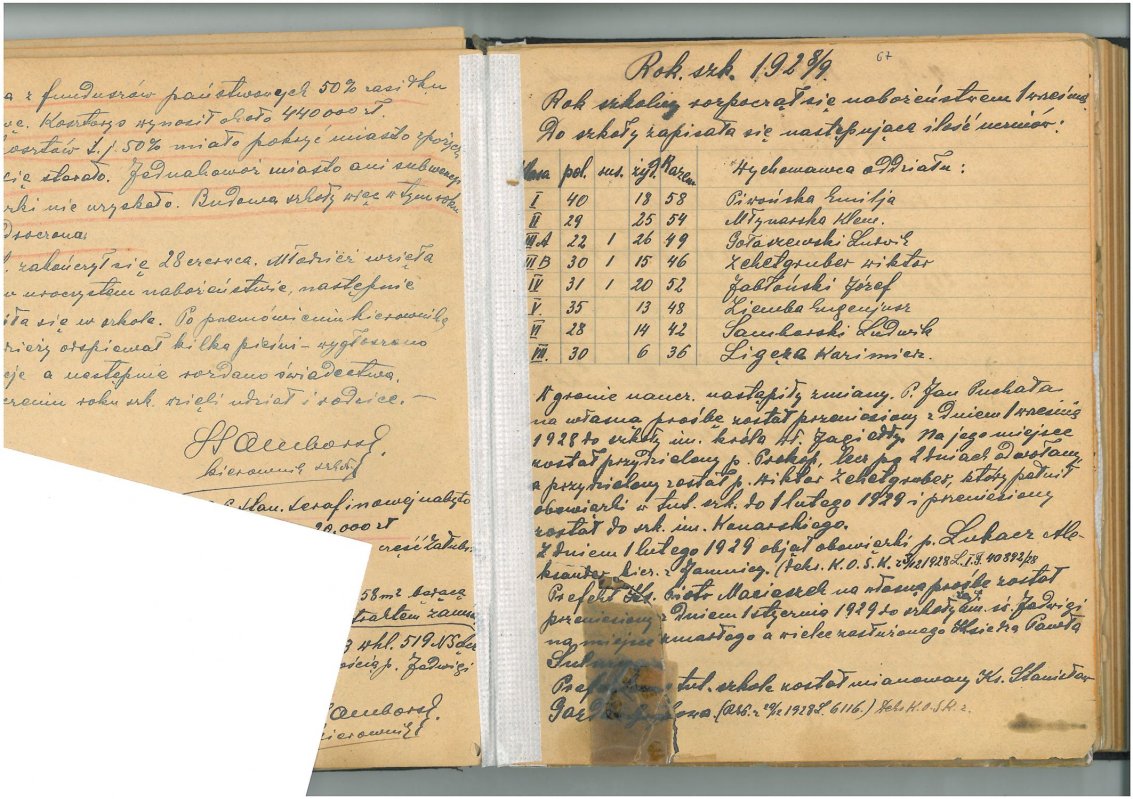 a z funduszów państwowych 50% zasiłku
Kosztorys wynosił około 440000 zł.
kosztów t.j. 50% miało pokryć miasto z pożycz
się starało. Jednakowoż miasto ani subwencji
nie uzyskało. Budowa szkoły więc w tym roku
zakończył się 28 czerwca. Młodzież wzięła
w uroczystem nabożeństwie, następnie
się w szkole. Po przemówieniu kierownika
odśpiewał kilka pieśni – wygłoszono
a następnie rozdano świadectwa.
roku szk. wzięli udział i rodzice. —
SSamborski
kierownik szkoły
Stan. Serafinowej nabyto
20.000 zł
część
58 m2
whl. 519
p. Jadwigi
Samborski
kierownik
67
Rok. szk. 1928/9.
Rok szkolny rozpoczął się nabożeństwem 1 września
Do szkoły zapisała się następująca ilość uczniów:
klasa pol. rus. żyd. Razem Wychowawca oddziału:
I 40 18 58 Piwońska Emilja
II 29 25 54 Młynarska Klem.
III A 22 1 26 49 Gołaszewski Ludwik
III B 30 1 15 46 Zehetgruber Wiktor
IV 31 1 20 52 Jabłoński Józef
V. 35 13 48 Ziemba Eugenjusz
VI 28 14 42 Samborski Ludwik
VII. 30 6 36 Ligęza Kazimierz.
W gronie naucz. nastąpiły zmiany. P. Jan Puchała
na własną prośbę został przeniesiony z dniem 1 września
1928 do szkoły im. króla Wł. Jagiełły. Na jego miejsce
został przydzielony p. Prokop, lecz po 2 dniach odwołany,
a przydzielony został p. Wiktor Zehetgruber, który pełnił
obowiązki w tut. szk. do 1 lutego 1929 i przeniesiony
został do szk. im. Konarskiego.
Z dniem 1 lutego 1929 objął obowiązki p. Łukacz Ale-
ksander, kier. z Jamnicy. (Dekr. K.O.S.K. z 1928 L.I.J. 40892/28
Prefekt Ks. Piotr Maciaszek na własną prośbę został
przeniesiony z dniem 1 stycznia 1929 do szkoły im. św. Jadwigi
na miejsce zmarłego a wielce zasłużonego Księdza Pawła
Prefektem tut. szkole został mianowany Ks. Stanisław
1928 L. 6116.) Dekr. K.O.S.K. z.